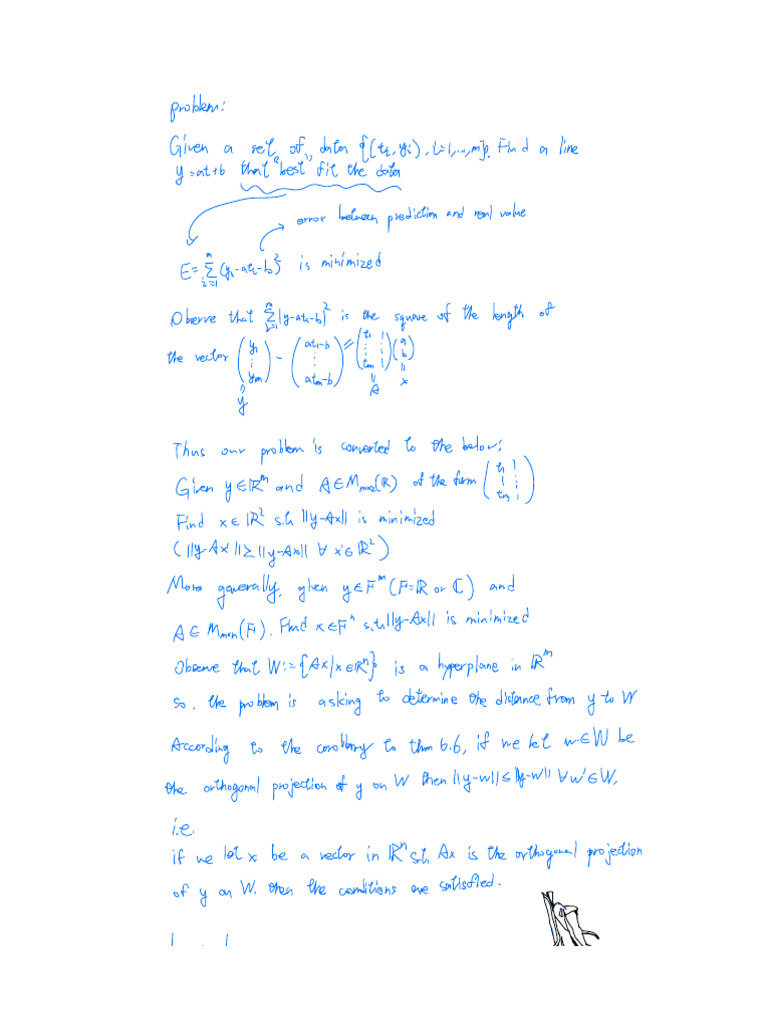 problem:
Given a set of data {(ti, yi), i=1,...,m}. Find a line
y=at+b that "best" fit the data
error between prediction and real value
E = Σ_{i=1}^{m} (yi-ati-b)² is minimized
Observe that Σ_{i=1}^{m} |y-ati-b|² is the square of the length of
the vector (y1 ⋮ ym) - (at1-b ⋮ atm-b) = (t1 1 ⋮ ⋮ tm 1)(a b)
= y = A = x
Thus our problem is converted to the below:
Given y∈ℝ^m and A∈M_{m×2}(ℝ) of the form (t1 1 ⋮ ⋮ tm 1)
Find x∈ℝ² s.t. ||y-Ax|| is minimized
(||y-Ax'||≥||y-Ax|| ∀ x'∈ℝ²)
More generally, given y∈F^m (F=ℝ or ℂ) and
A∈M_{m×n}(F). Find x∈F^n s.t. ||y-Ax|| is minimized
Observe that W:={Ax|x∈ℝ^n} is a hyperplane in ℝ^m
so. the problem is asking to determine the distance from y to W
According to the corollary to thm 6.6, if we let w∈W be
the orthogonal projection of y on W then ||y-w||≤||y-w'|| ∀w'∈W,
i.e.
if we let x be a vector in ℝ^n s.t. Ax is the orthogonal projection
of y on W. then the conditions are satisfied.